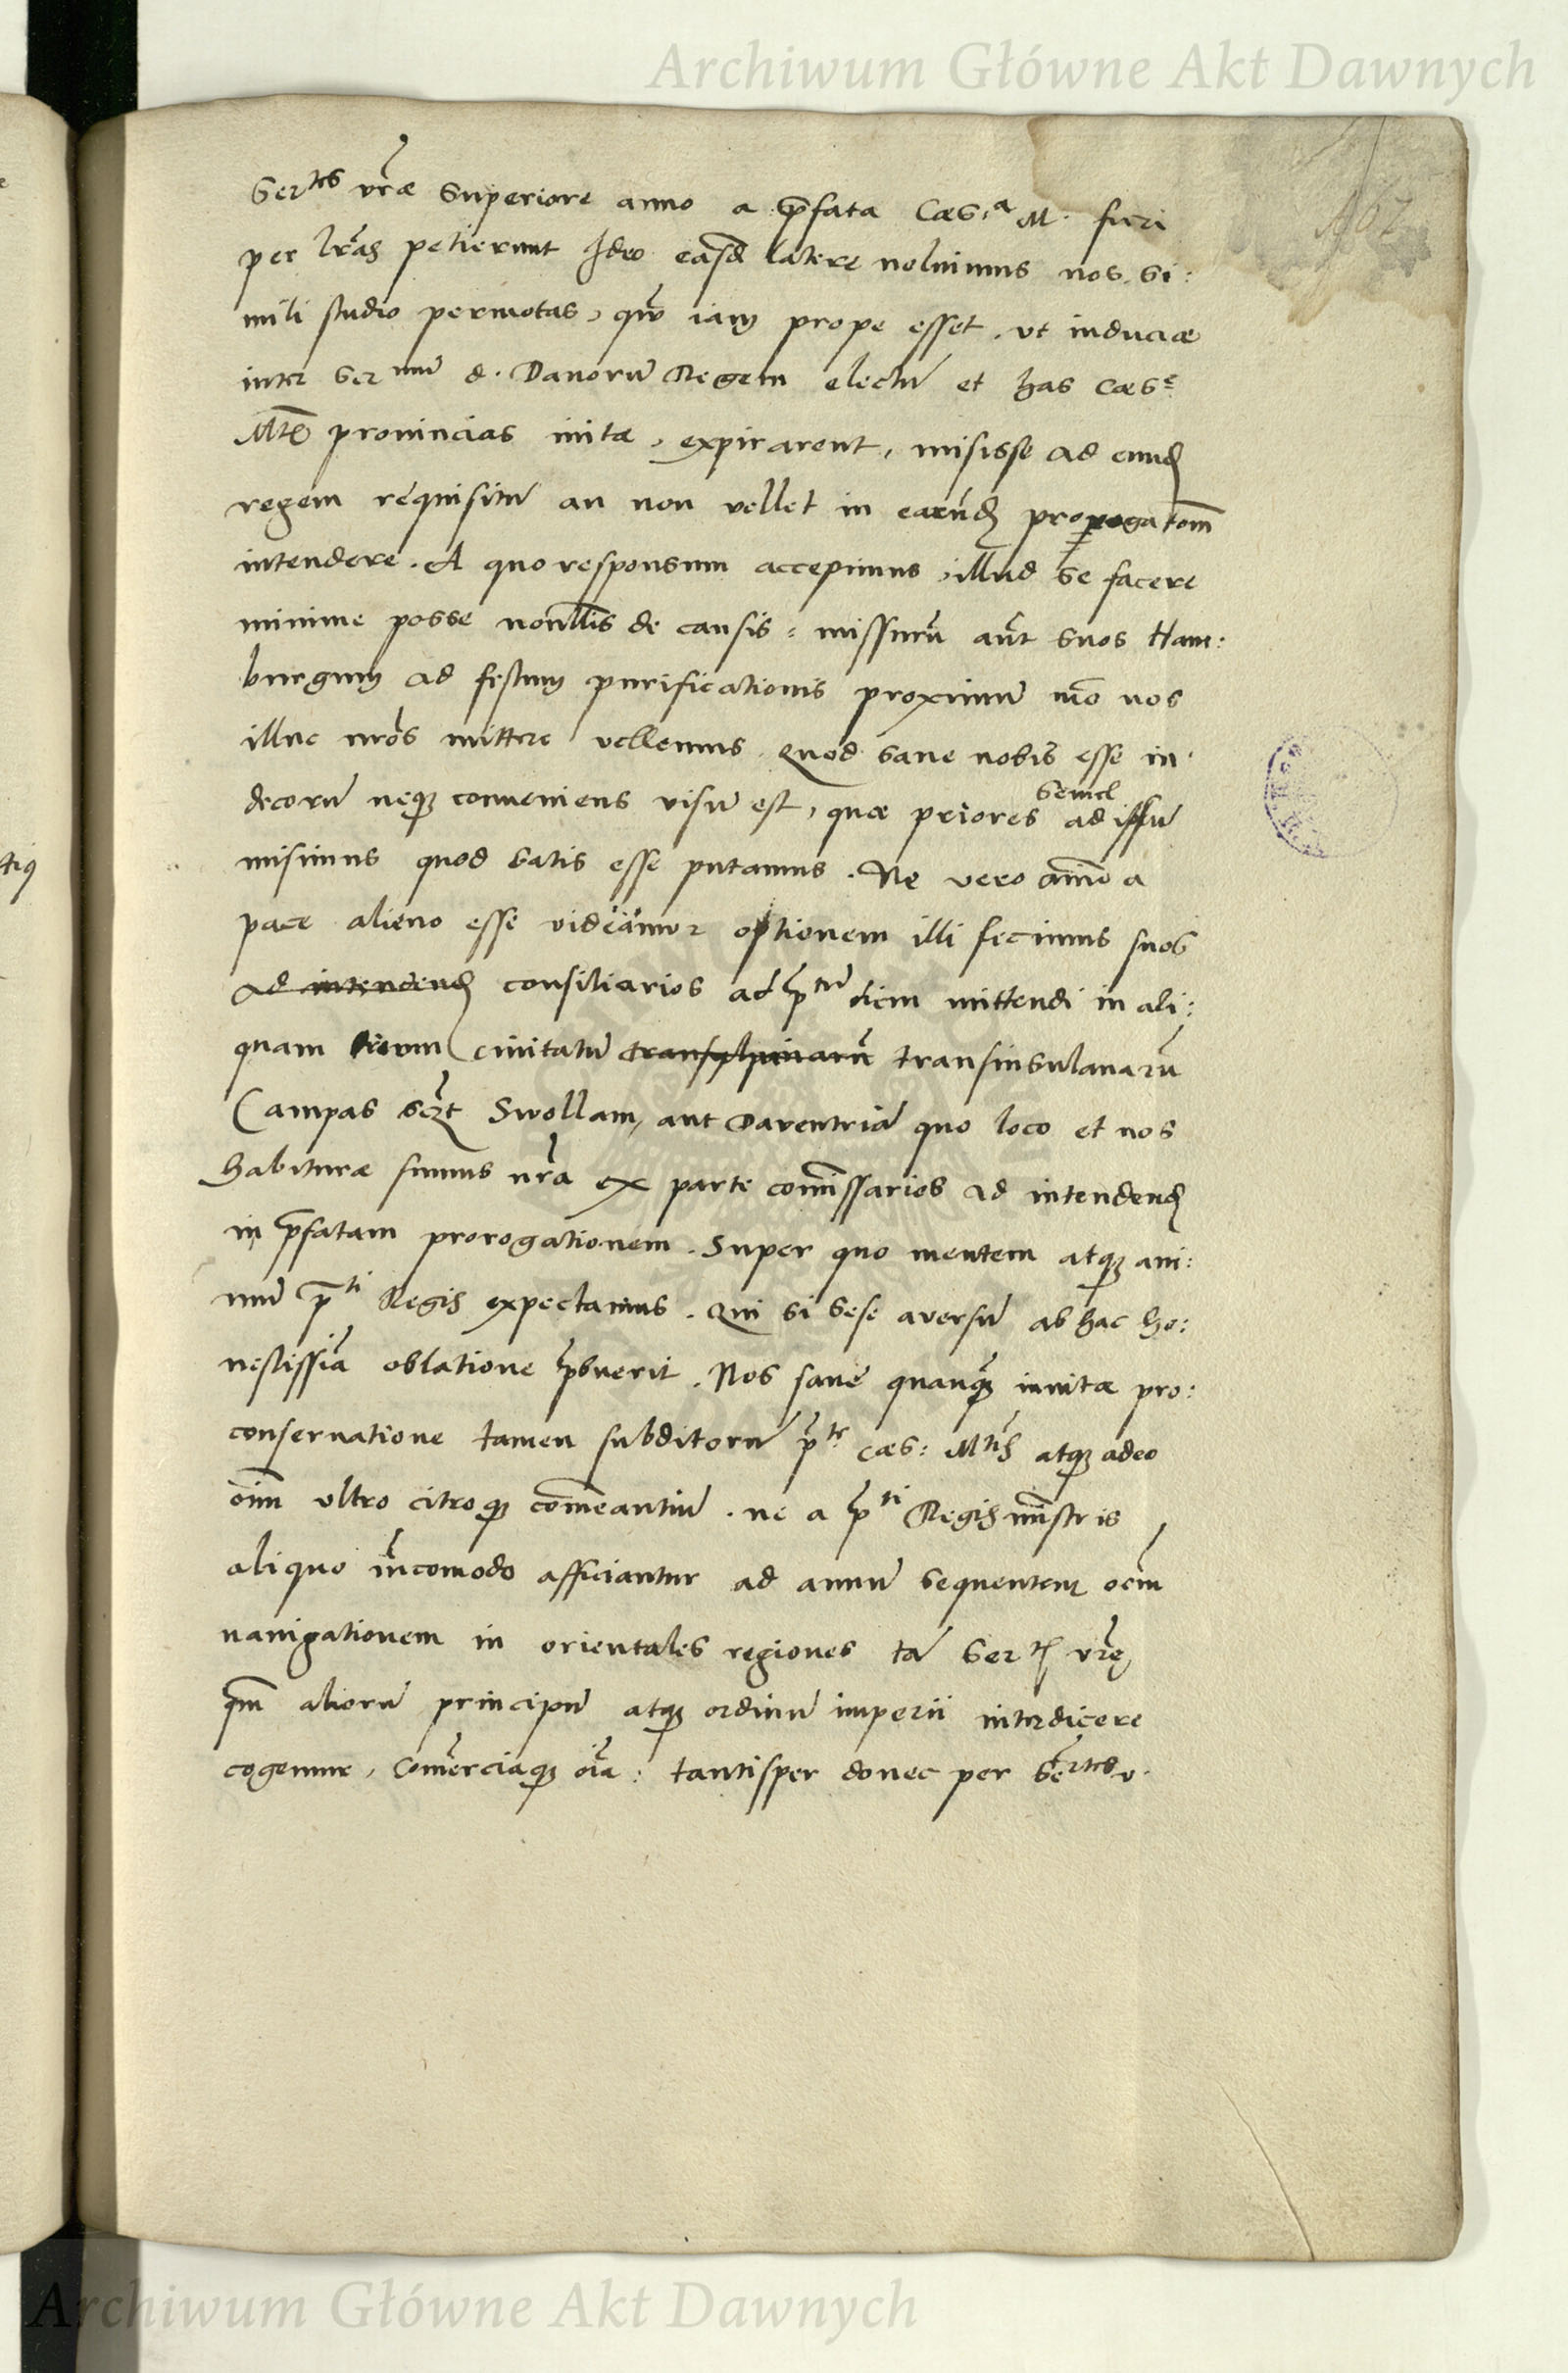 Archiwum Główne Akt Dawnych
Ser^tes vr̃ae superiore anno a p̃fata Caes.^a M. fieri
per lr̃as petierunt Ideo easd̃ latere noluimus nos si:
mili studio permotas, qũ iam prope esset, vt induciae
inter Ser^mũ d. Danorũ Regem electũ et has Caes^e
Mt̃e prouincias initae, expirarent, misisse ad eund̃
regem requisitũ an non vellet in earund̃ prorogatom̃
intendere. A quo responsum accepimus, illud se facere
minime posse nonnll̃is de causis: missurũ aũt suos Ham:
burgum ad festum purificationis proximũ mõ nos
illuc nrõs mittere vellemus. Quod sane nobis esse in
decorũ neq3 conueniens visũ est, quae priores semel ad ipsũ
misimus quod satis esse putamus. Ne vero aĩmo a
pace alieno esse videamur optionem illi fecimus suos
ad intendend̃ consiliarios ad p̃^tũ diem mittendi in ali:
quam ciuitatũ transylvinarũ transinsulanarũ
Campas vz̃t Swollam, aut Dauentriã quo loco et nos
habiturae sumus nr̃a ex parte com̃issarios ad intendend̃
in p̃fatam prorogationem. Super quo mentem atq3 ani:
mũ p̃^ti Regis expectamus. Qui si sese auersũ ab hac ho:
nestissĩa oblatione p̃buerit. Nos sane quanq̃3 inuitae pro:
conseruatione tamen subditorũ p̃^te Caes: Mtĩs atq3 adeo
oĩm vltro citroq3 com̃eantiũ. ne a p̃^ti Regis mĩstris
aliquo ĩncomodo afficiantur ad annũ sequentem oem̃
nauigationem in orientales regiones tã Ser^ts vr̃ę
qm̃ aliorũ principũ atq3 ordinũ imperii interdicere
cogemur, Com̃erciaq3 oĩa: tantisper donec per Ser^tes v.
Archiwum Główne Akt Dawnych